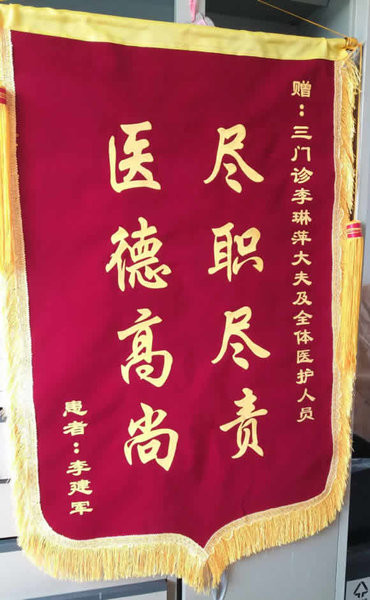 赠：三门诊李琳萍大夫及全体医护人员
尽职尽责
医德高尚
患者：李建军